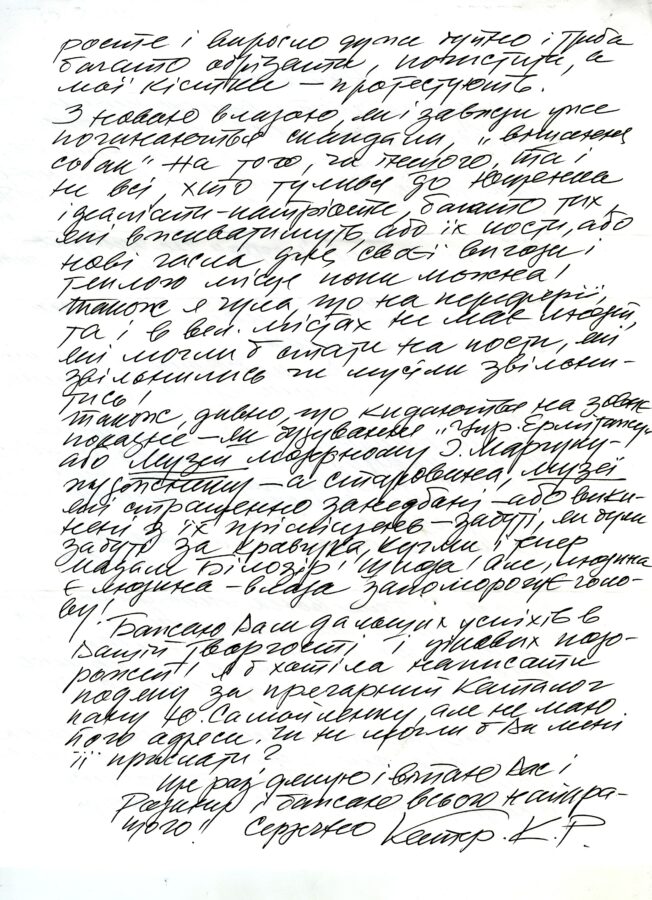 росте і виросло дуже буйно і треба
багато обрізати, почистити, а
мої кістки — протестують.
З новою владою, як і завжди уже
починаються скандали, „вішання
собак" на того, чи іншого, та і
не всі, хто тулився до Ющенка
ідеалісти-патріоти, багато тих,
які вживатимуть або їх пости, або
нові числа для своєї вигоди і
теплого місця поки можна!
Також я чула що на периферії,
та і в вел. містах не має людей,
які могли б стати на пости, які
звільнились чи мусіли звільни-
тись!
Також, дивно, що кидаються на зовн.
показне — як будування „Укр. Ермітажу"
або Музей модерному З. Марчуку-
художнику — а старовина, музеї
які страшенно занедбані — або вики-
нені з їх приміщень — забуті, як були
забуті за Кравчука, Кучми і тепер
мадам Білозір! Шкода! Але, людина
є людина — влада запоморочує голо-
ву!
Бажаю Вам дальших успіхів в
Вашій творчості і цікавих подо-
рожей! Я б хотіла написати
подяку за прегарний Каталог
пану Ю. Самойленку, але не маю
його адреси. Чи не могли б Ви мені
її прислати?
Ще раз дякую і вітаю Вас і
Родину і бажаю всього найкра-
щого! Сердечно К. Р.